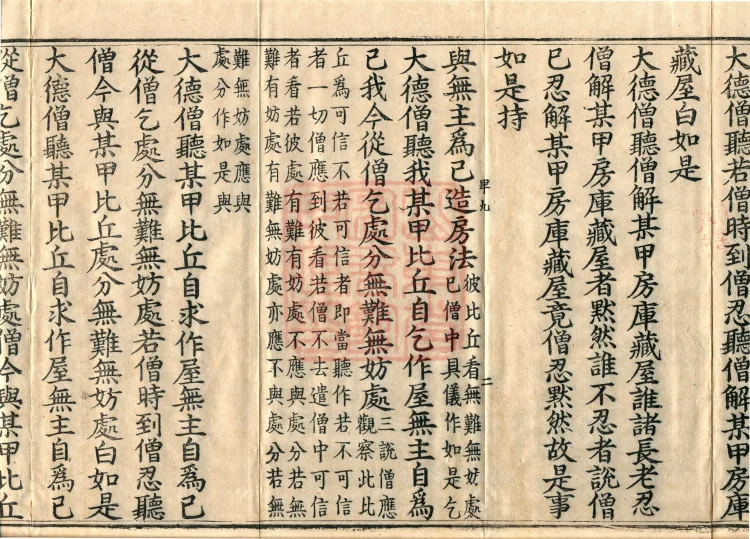 大德僧聽若僧時到僧忍聽僧解某甲房庫
藏屋白如是
大德僧聽僧解某甲房庫藏屋誰諸長老忍
僧解某甲房庫藏屋者默然誰不忍者說僧
已忍解某甲房庫藏屋竟僧忍默然故是事
如是持
二
與無主爲己造房法
彼比丘看無難無妨處
已僧中具儀作如是乞
大德僧聽我某甲比丘自乞作屋無主自爲
己我今從僧乞處分無難無妨處
三說僧應
觀察此比
丘爲可信不若可信者即當聽作若不可信
者一切僧應到彼看若僧不去遣僧中可信
者看若彼處有難有妨處不應與處分若無
難有妨處有難無妨處亦應不與處分若無
難無妨處應與
處分作如是與
大德僧聽某甲比丘自求作屋無主自爲己
從僧乞處分無難無妨處若僧時到僧忍聽
僧今與某甲比丘處分無難無妨處白如是
大德僧聽某甲比丘自求作屋無主自爲己
從僧乞處分無難無妨處僧今與某甲比丘